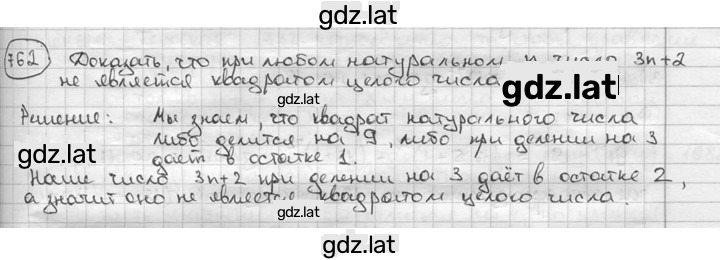 gdz.lat
762 Доказать, что при любом натуральном n число 3n+2
не является квадратом целого числа
gdz.lat
gdz.lat
Решение: Мы знаем, что квадрат натурального числа
либо делится на 9, либо при делении на 3
gdz.lat
даёт в остатке 1.
gdz.lat
Наше число 3n+2 при делении на 3 даёт в остатке 2,
а значит оно не является квадратом целого числа.
gdz.lat
gdz.lat